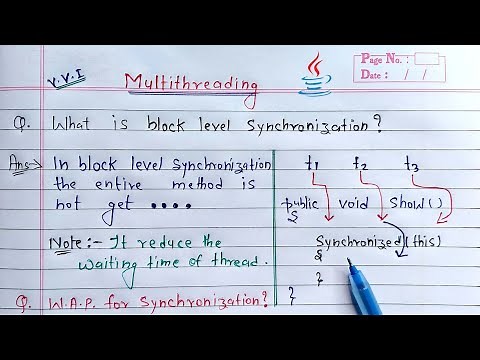 Page No.:
Date: / /
V.V.I
Multithreading
Q. What is block level Synchronization?
Ans→ In block level Synchronization
the entire method is
not get ....
Note:- It reduce the
waiting time of thread.
Q. W.A.P. for Synchronization?
t1 t2 t3
public void Show()
{
Synchronized(this)
{
}
}